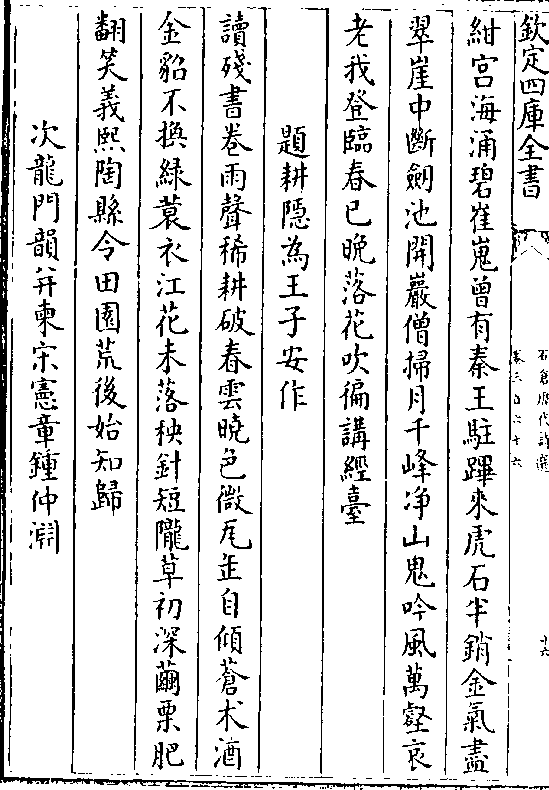 欽定四庫全書
石倉歷代詩選
卷三百六十六
十六
紺宮海涌碧崔嵬曾有秦王駐蹕來虎石半銷金氣盡
翠崖中斷劒池開巖僧掃月千峰净山鬼吟風萬壑哀
老我登臨春已晚落花吹徧講經臺
題耕隠為王子安作
讀殘書卷雨聲稀耕破春雲曉色微瓦缶自傾蒼术酒
金貂不換緑蓑衣江花未落秧針短隴草初深繭栗肥
翻笑義熙陶縣令田園荒後始知歸
次龍門韻并柬宋憲章鍾仲淵